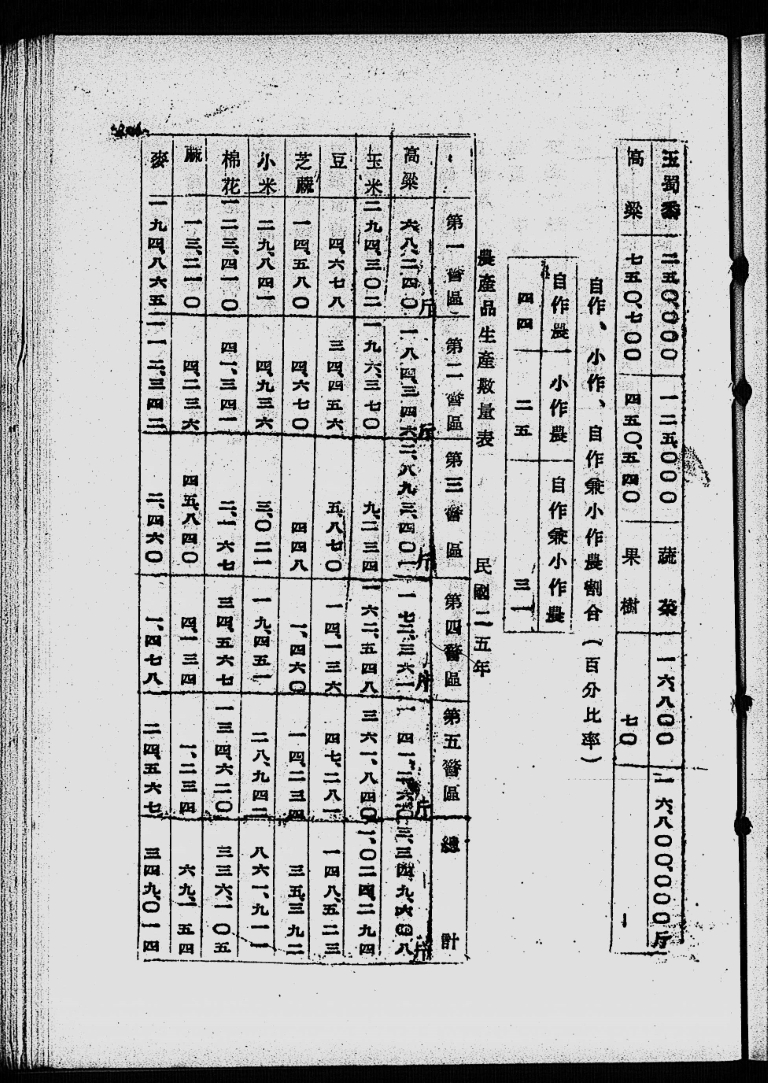 玉蜀黍 二五〇、〇〇〇 一二五、〇〇〇 蔬菜 一六、八〇〇 一六、八〇〇、〇〇〇斤
高粱 七五〇、七〇〇 四五〇、五四〇 果樹 七〇
自作、小作、自作兼小作農割合(百分比率)
自作農 小作農 自作兼小作農
四四 二五 三一
農產品生產數量表 民國二五年
第一警區 第二警區 第三警區 第四警區 第五警區 總計
高粱 六八、二四〇斤 一八四、三四六斤 二、八九三、四〇一斤 一七二、三六一斤 斤 三、三四九、六〇八斤
玉米 二九四、三〇二 一九六、三七〇 九、二三四 一六二、五四八 三六一、八四〇 一、〇二四、二九四
豆 四、六七八 三四、四五六 五、八七〇 一四、一三六 四七、二八一 一四八、五二三
芝蔴 一四、五八〇 四、六七〇 四四八 一、四六〇 一四、二三四 三五、三九二
小米 二九、八四一 四、九三六 三、〇二一 一九、四五一 二八、九四二 八六一、九一一
棉花 一二三、四一〇 四一、三四一 二、一六七 三四、五六七 一三四、六二〇 三三六、一〇五
蔴 一三、二一〇 四、二三六 四五、八四〇 四、一三四 一、二三四 六九、一五四
麥 一九四、八六五 一一二、三四二 二、四六〇 一、四七八 二四、五六七 三四九、〇一四